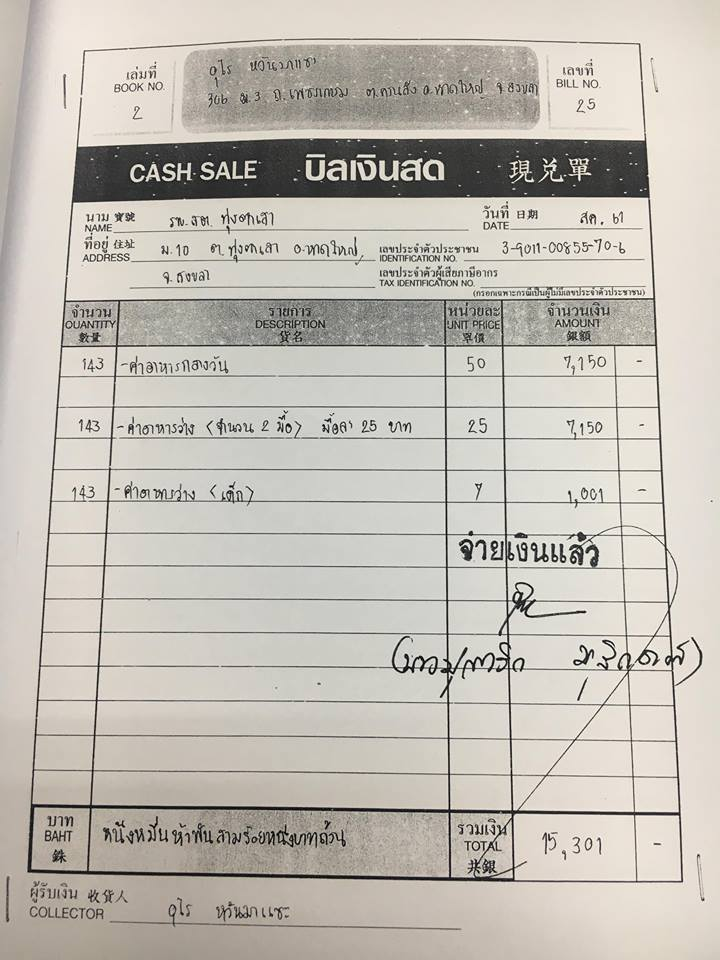 เล่มที่
BOOK NO.
2
อุไร หวันมาแซะ
306 ม.3 ถ.เพชรเกษม ต.ควนลัง อ.หาดใหญ่ จ.สงขลา
เลขที่
BILL NO.
25
CASH SALE บิลเงินสด 現兌單
นาม 寶號 NAME รพ.สต. ทุ่งตำเสา
วันที่ 日期 DATE สค. 61
ที่อยู่ 住址 ADDRESS ม.10 ต.ทุ่งตำเสา อ.หาดใหญ่
เลขประจำตัวประชาชน IDENTIFICATION NO. 3-9011-00855-70-6
จ.สงขลา
เลขประจำตัวผู้เสียภาษีอากร TAX IDENTIFICATION NO.
(กรอกเฉพาะกรณีเป็นผู้ไม่มีเลขประจำตัวประชาชน)
จำนวน รายการ หน่วยละ จำนวนเงิน
QUANTITY DESCRIPTION UNIT PRICE AMOUNT
數量 貨名 單價 銀額
143 -ค่าอาหารกลางวัน 50 7,150 -
143 -ค่าอาหารว่าง (จำนวน 2 มื้อ) มื้อละ 25 บาท 25 7,150 -
143 -ค่าอาหารว่าง (เด็ก) 7 1,001 -
จ่ายเงินแล้ว
บาท BAHT 銖 หนึ่งหมื่นห้าพันสามร้อยหนึ่งบาทถ้วน รวมเงิน TOTAL 共銀 15,301 -
ผู้รับเงิน 收貨人
COLLECTOR อุไร หวันมาแซะ